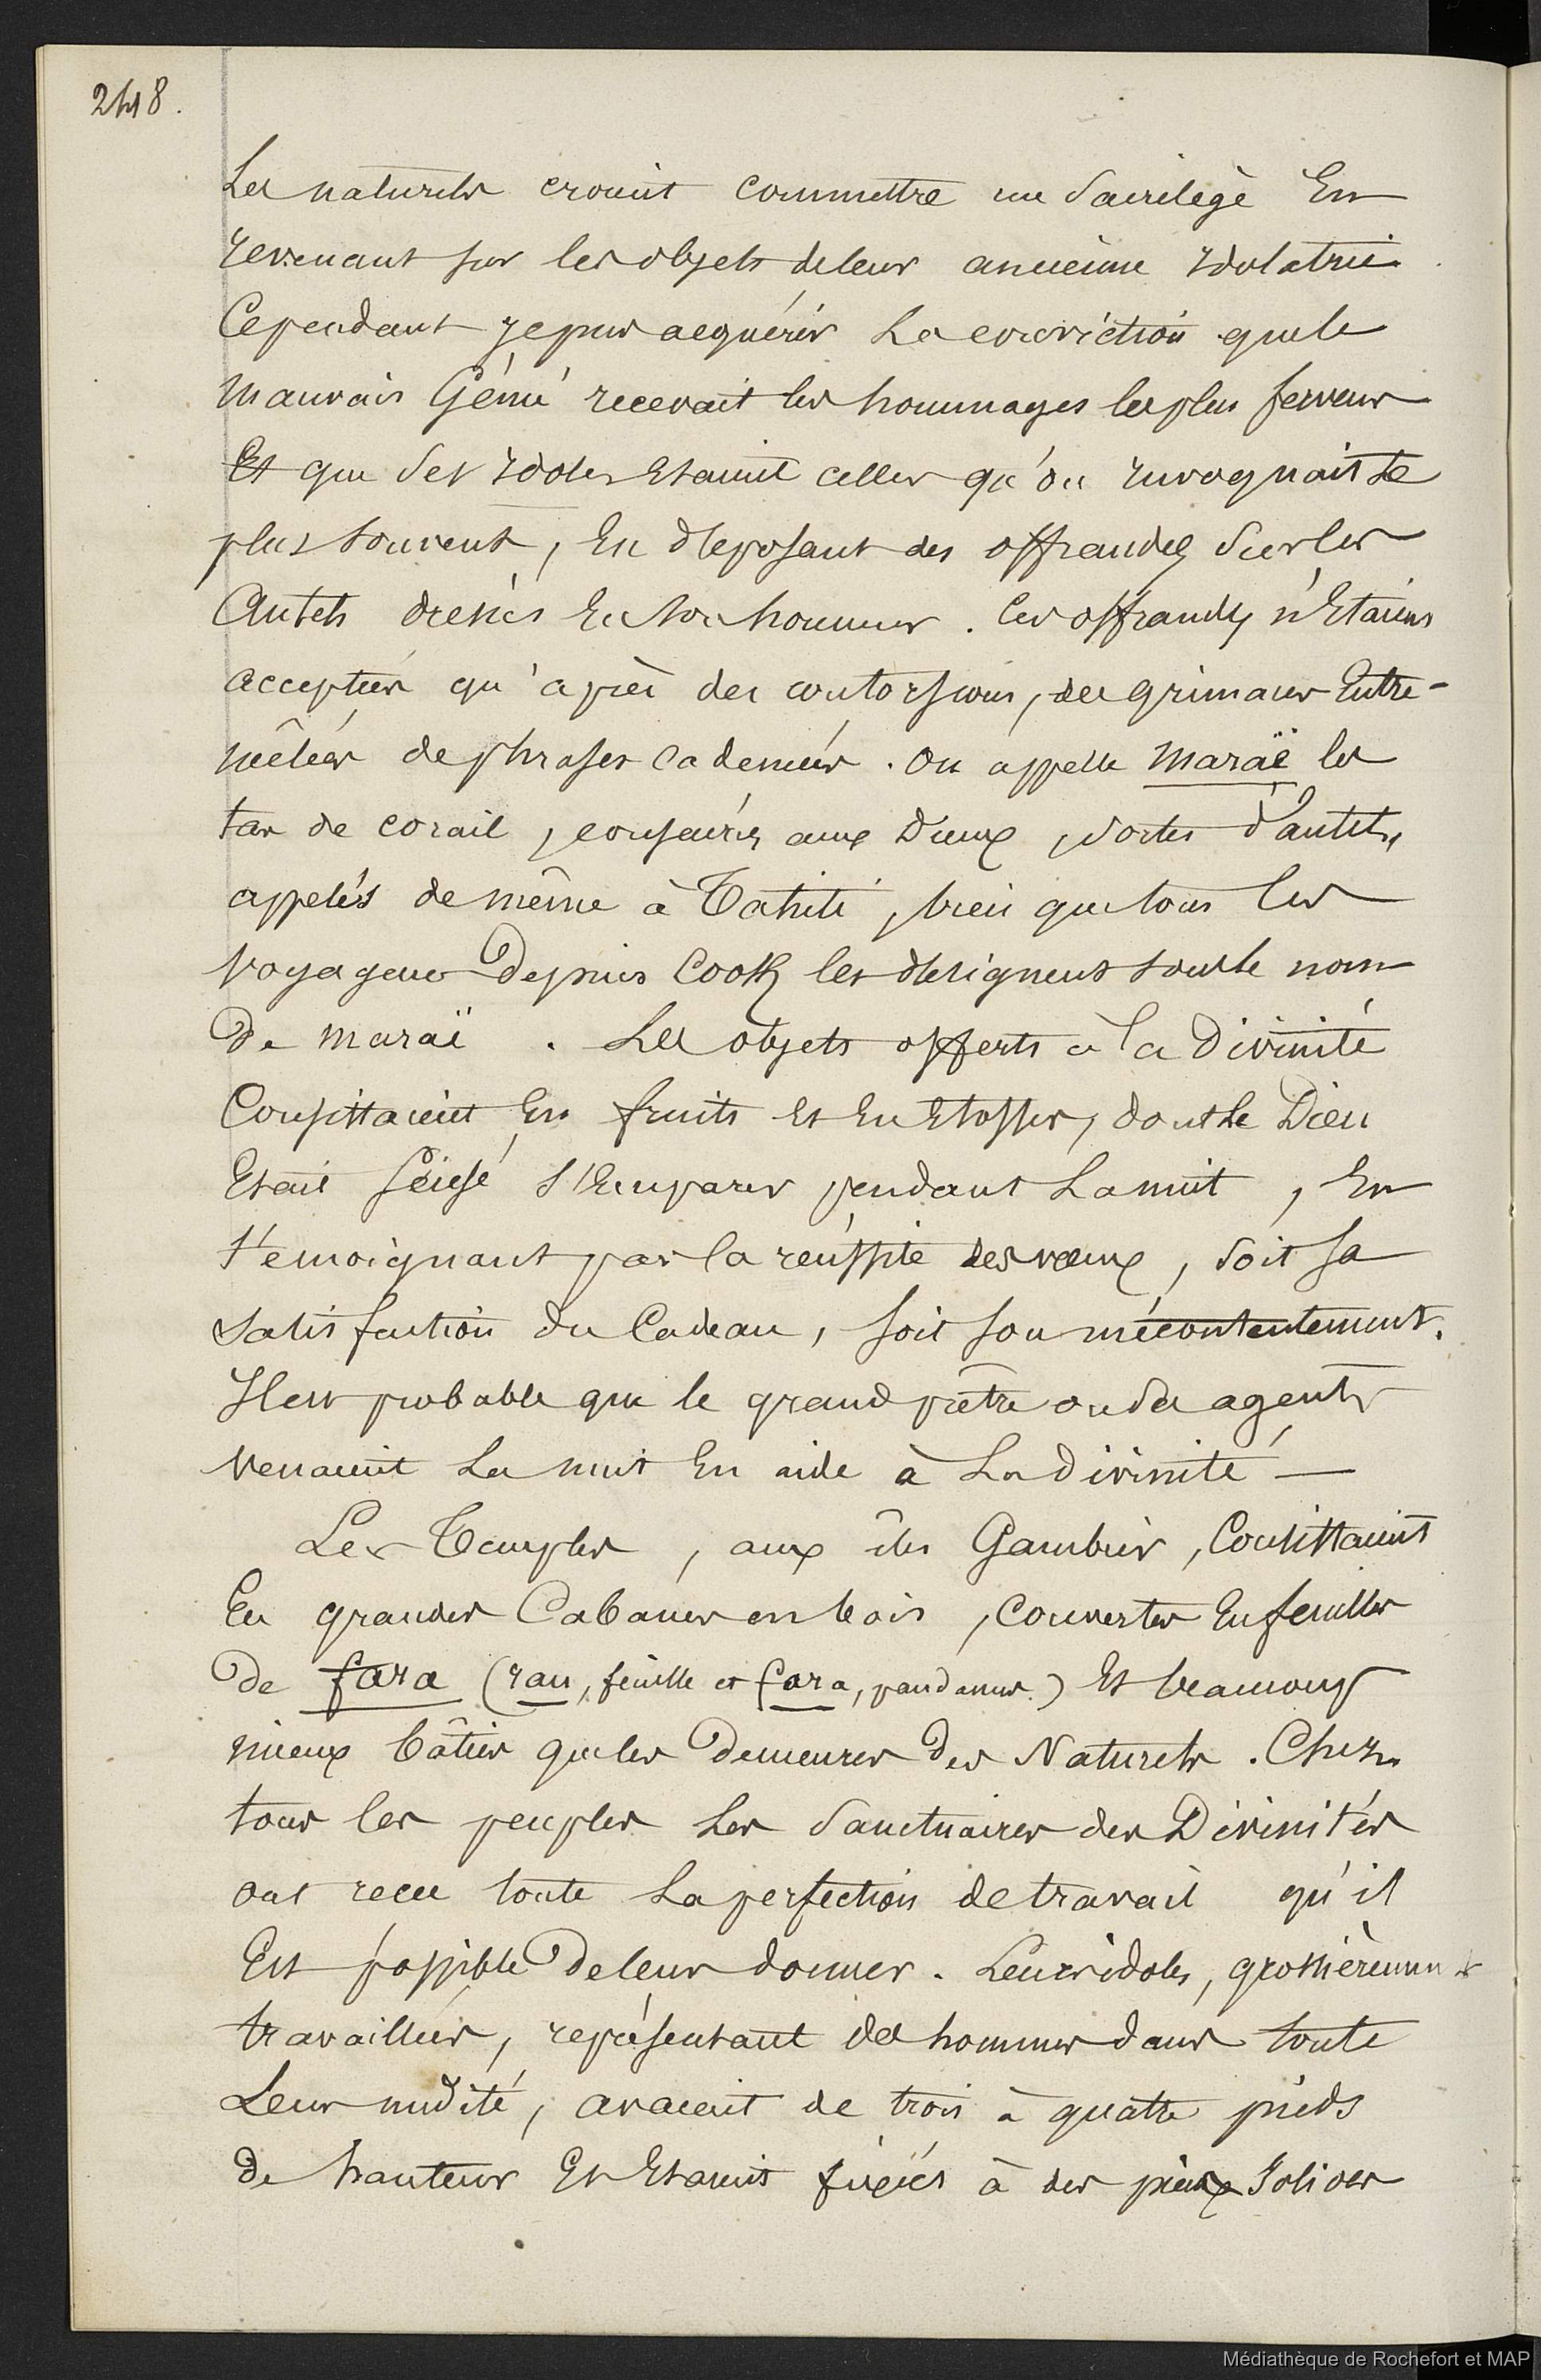 248.
Les naturels croient commettre un Sacrilège En
revenant sur les objets de leur ancienne Idolatrie.
Cependant je pus acquérir La conviction que le
mauvais Génie recevait les hommages les plus fervens
Et que Ses Idoles Etaient celles qu'on Invoquait Le
plus souvent, En deposant des offrandes Sur les
Autels dressés En Son honneur. Ces offrandes n'Etaient
acceptées qu'après des contorsions, des grimaces Entre-
mêlées de phrases cadencées. On appelle Maraë les
tas de corail, consacrés aux Dieux, sortes d'autels,
appelés de même à Tahiti, bien que tous les
voyageurs Depuis Cook les designent sous le nom
De maraï. Les objets offerts à la Divinité
Consistaient En fruits Et En Etoffes, dont Le Dieu
Etait censé s'Emparer pendant La nuit, En
témoignant par la réussite des vœux, soit sa
satisfaction du Cadeau, soit son mécontentement.
Il est probable que le grand prêtre ou des agents
venaient La nuit En aide à La Divinité —
Les Temples, aux îles Gambier, Consistaient
En grandes Cabanes en bois, couvertes En feuilles
De fara (rau, feuille et fara, pandanus.) Et beaucoup
mieux bâties que les Demeures Des Naturels. Chez
tous les peuples Les Sanctuaires des Divinités
ont recu toute La perfection de travail qu'il
Est possible De leur donner. Leurs idoles, grossièrement
travaillées, représentant des hommes dans toute
Leur nudité, avaient de trois à quatre pieds
De hauteur Et Etaient fixées à des pieux Solides
Médiathèque de Rochefort et MAP